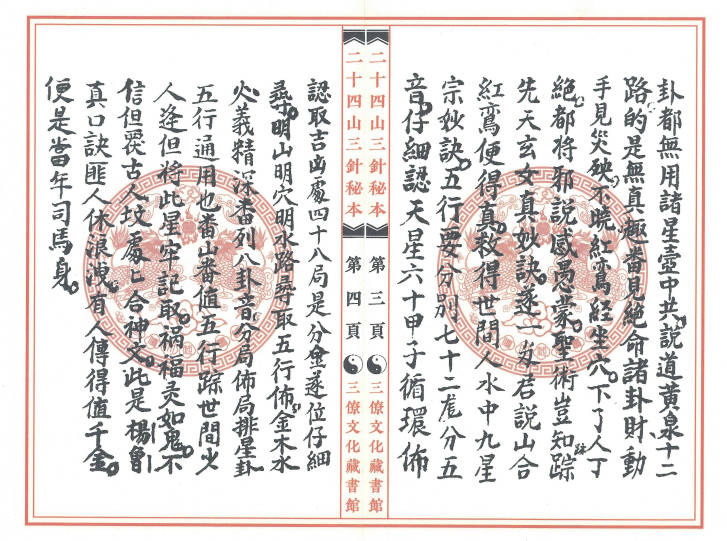 卦都無用諸星壺中共說道黃泉十二
路的是無真趣畨見絕命諸卦財動
手見災殃不曉紅鸞經生穴下了人丁
絕都将邪說惑愚蒙聖術豈知踪
先天玄女真妙訣遂一为君說山合
紅鸞便得真救得世間人水中九星
宗妙訣五行要分別七十二龙分五
音仔細認天星六十甲子循環佈
二十四山三針秘本
第三頁
三僚文化藏書館
二十四山三針秘本
第四頁
三僚文化藏書館
認取吉凶處四十八局是分金遂位仔細
尋明山明穴明水路尋取五行佈金木水
火義精深畨列八卦音分局佈局排星卦
五行通用也畨山畨值五行踪世間少
人逢但将此星牢記取禍福灵如鬼不
信但覆古人坟處匕合神文此是楊魯
真口訣匪人休浪洩有人傳得值千金
便是當年司馬身